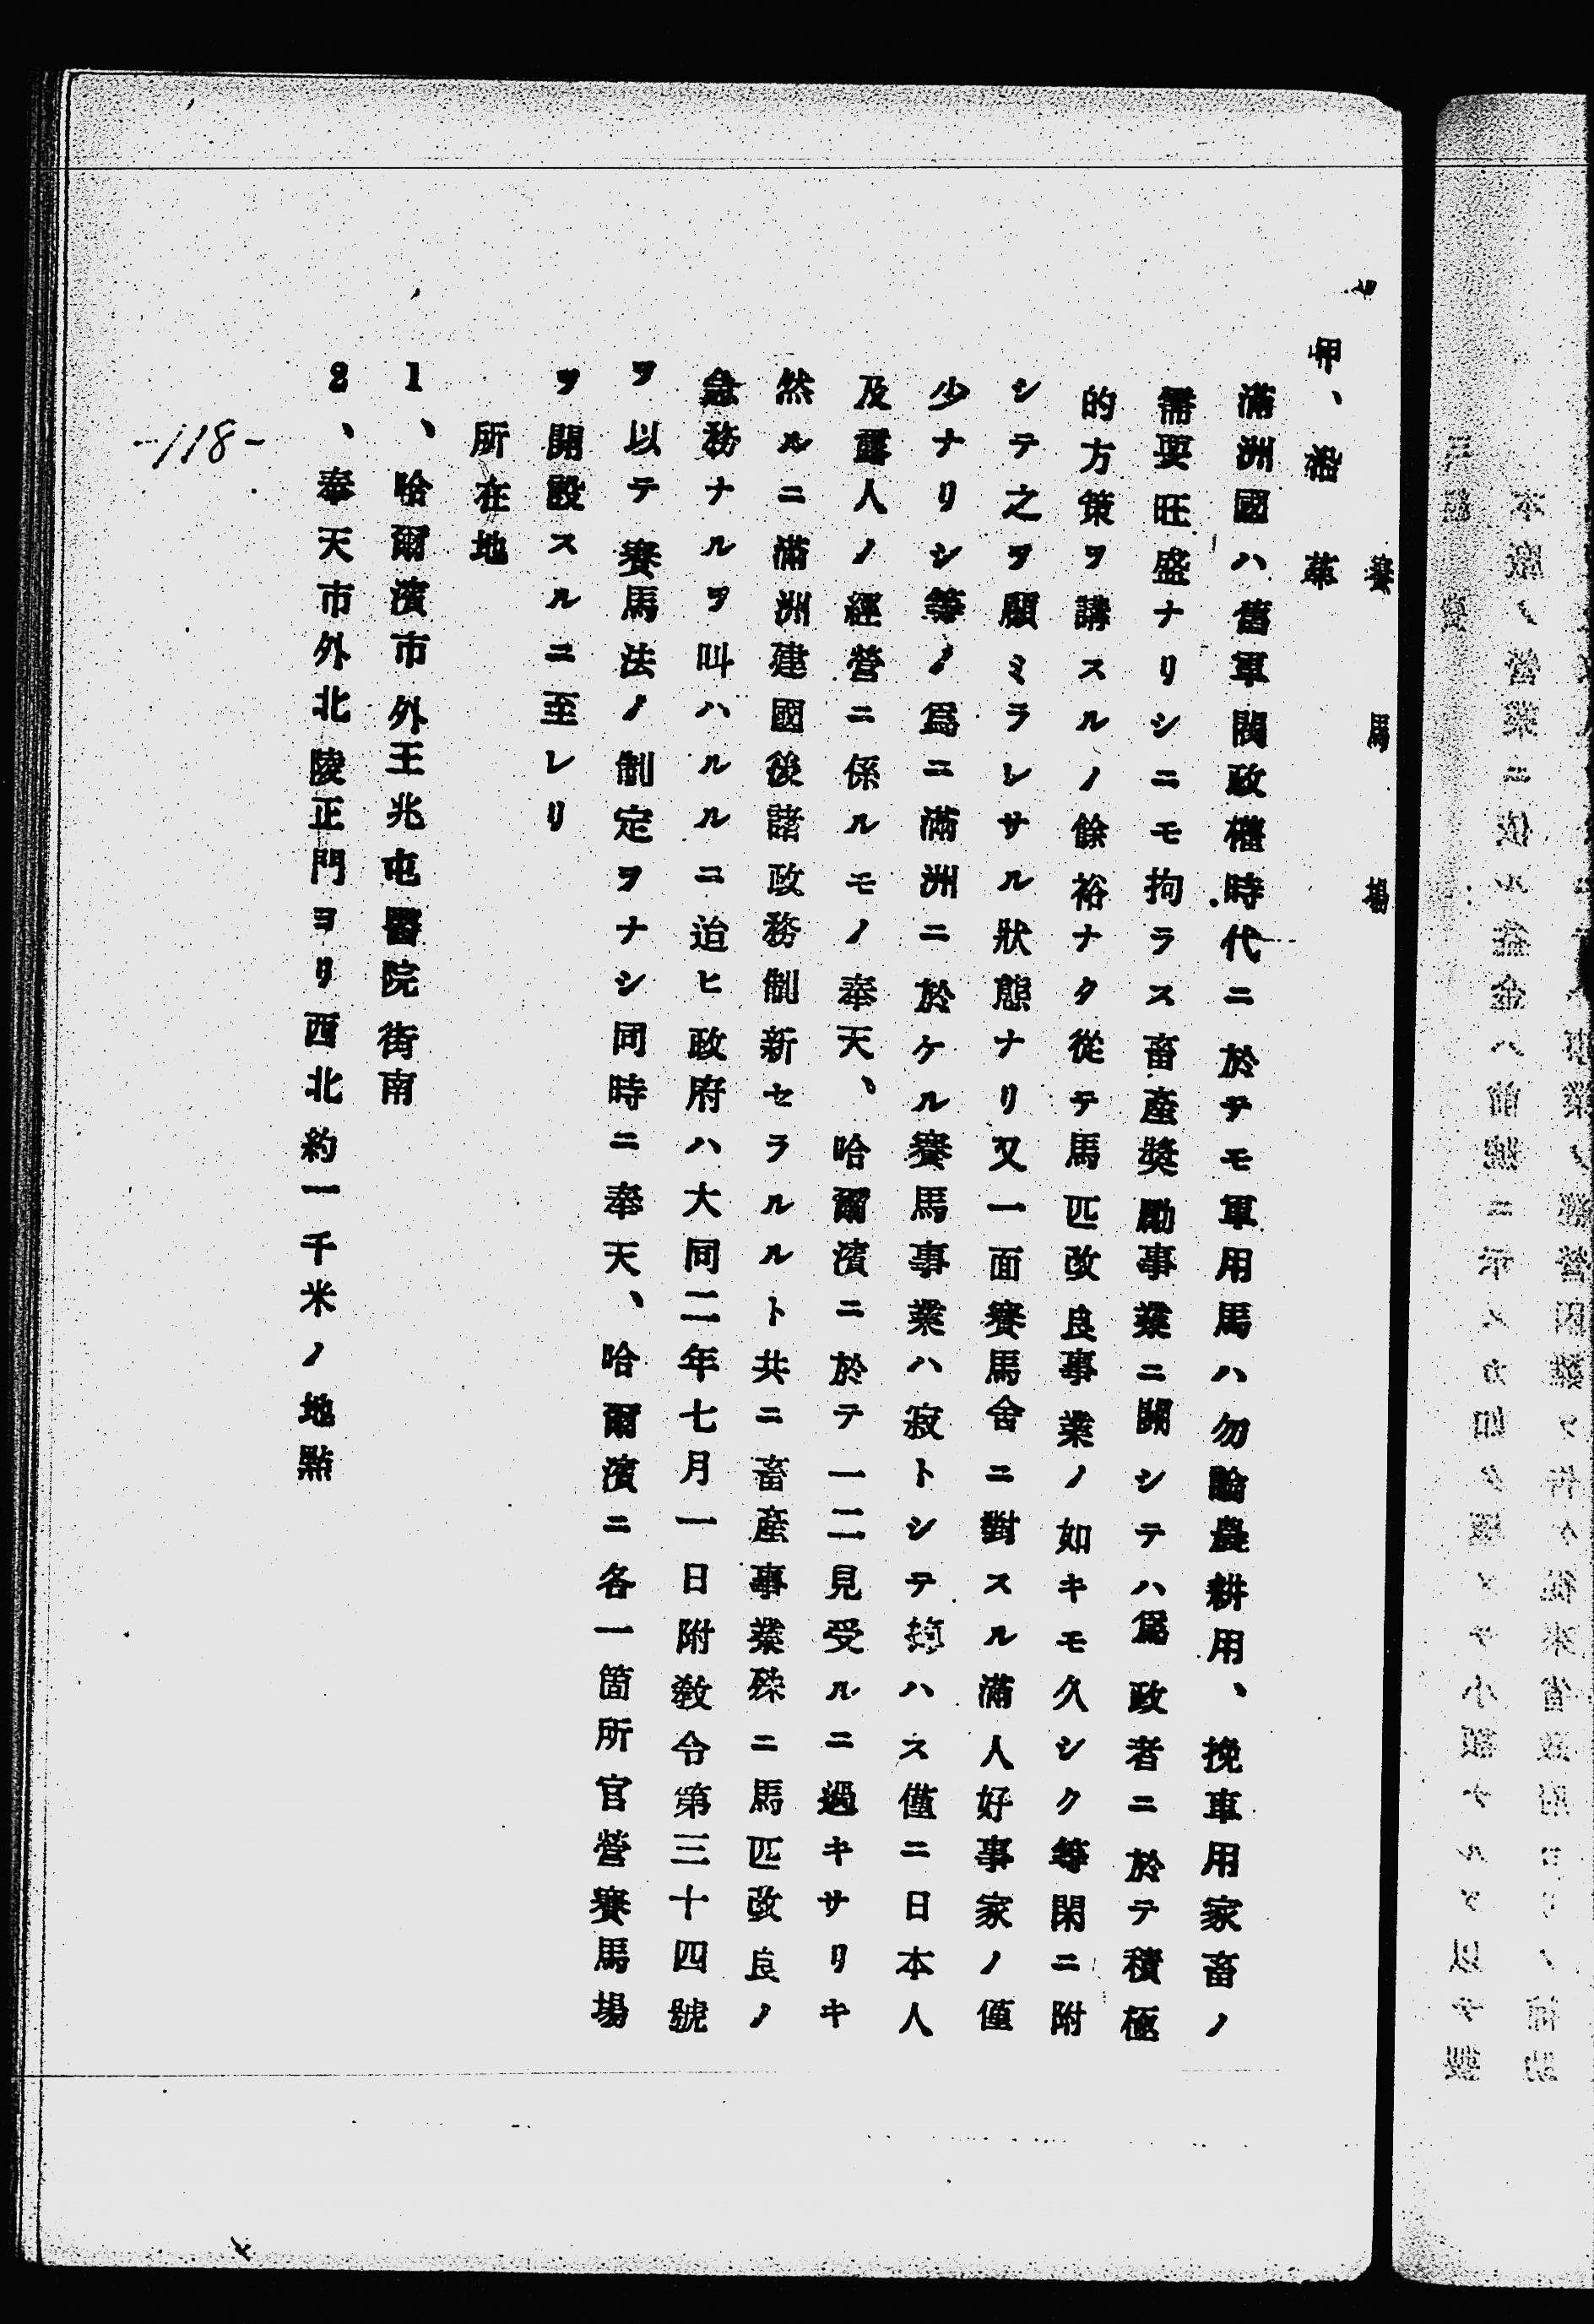 七 賽馬場
甲、沿革
滿洲國ハ舊軍閥政權時代ニ於テモ軍用馬ハ勿論農耕用、挽車用家畜ノ
需要旺盛ナリシニモ拘ラス畜產奬勵事業ニ關シテハ爲政者ニ於テ積極
的方策ヲ講スルノ餘裕ナク從テ馬匹改良事業ノ如キモ久シク等閑ニ附
シテ之ヲ顧ミラレサル狀態ナリ又一面賽馬會ニ對スル滿人好事家ノ僅
少ナリシ等ノ爲ニ滿洲ニ於ケル賽馬事業ハ寂トシテ振ハス僅ニ日本人
及露人ノ經營ニ係ルモノ奉天、哈爾濱ニ於テ一二見受ルニ過キサリキ
然ルニ滿洲建國後諸政務制新セラルルト共ニ畜產事業殊ニ馬匹改良ノ
急務ナルヲ叫ハルルニ迨ヒ政府ハ大同二年七月一日附敎令第三十四號
ヲ以テ賽馬法ノ制定ヲナシ同時ニ奉天、哈爾濱ニ各一箇所官營賽馬場
ヲ開設スルニ至レリ
所在地
1、哈爾濱市外王兆屯醫院街南
2、奉天市外北陵正門ヨリ西北約一千米ノ地點
-118-